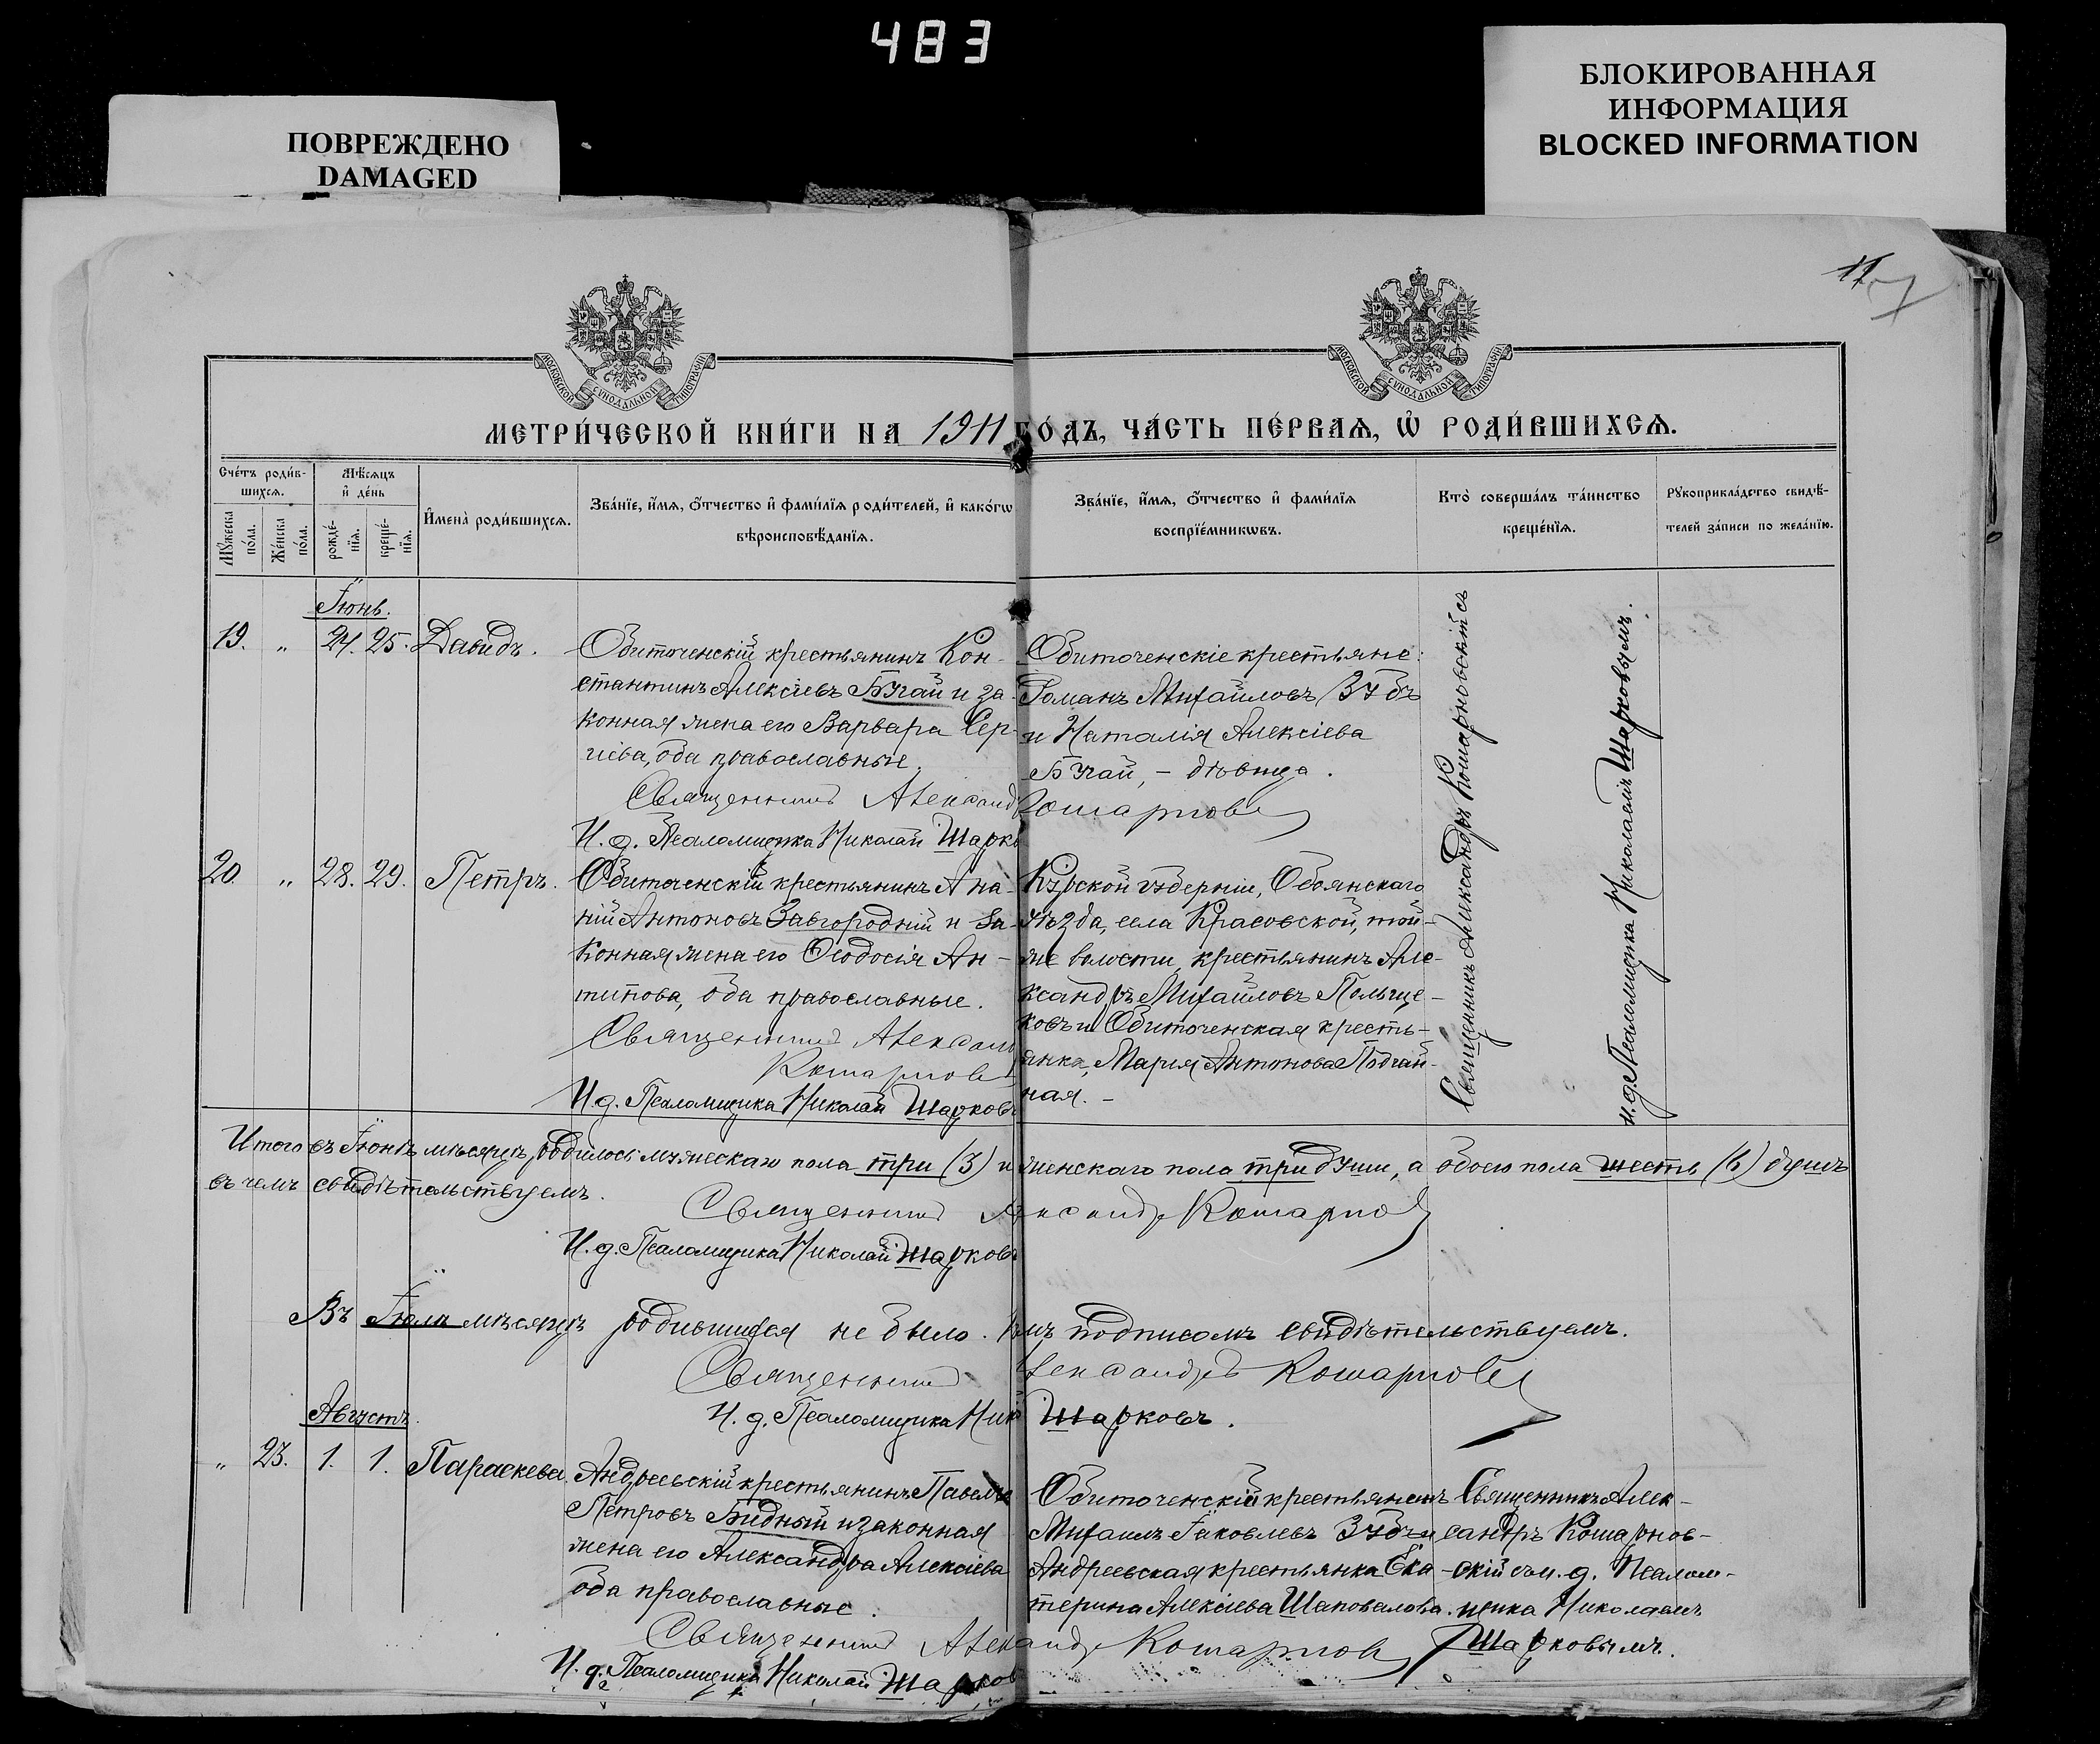 483
ПОВРЕЖДЕНО
DAMAGED
БЛОКИРОВАННАЯ
ИНФОРМАЦИЯ
BLOCKED INFORMATION
11
7
МОСКОВСКОЙ СУНОДАЛЬНОЙ ТИПОГРАФІИ
МОСКОВСКОЙ СУНОДАЛЬНОЙ ТИПОГРАФІИ
МЕТРИ́ЧЕСКОЙ КНИ́ГИ НА 1911 ГО́ДЪ, ЧА́СТЬ ПЕ́РВАѦ, Ѡ҆ РОДИ́ВШИХСѦ.
Сче́тъ роди́в-
шихсѧ.
Мꙋ́жеска по́ла.
Же́нска по́ла.
Мѣ́сѧцъ
и҆ де́нь
рожде́-
нїѧ.
креще́-
нїѧ.
И҆мена̀ роди́вшихсѧ.
Зва́нїе, и҆́мѧ, ѻ҆́тчество и҆ фами́лїѧ роди́телей, и҆ како́гѡ
вѣроисповѣ́данїѧ.
Зва́нїе, и҆́мѧ, ѻ҆́тчество и҆ фами́лїѧ
воспрїе́мникѡвъ.
Кто̀ соверша́лъ та́инство
креще́нїѧ.
Рꙋкоприкла́дство свидѣ́-
телей за́писи по жела́нїю.
Іюнь.
19. „ 24. 25. Давидъ.
Обиточенскій крестьянинъ Кон-
стантинъ Алексіевъ Бугай и за-
конная жена его Варвара Сер-
гіева, оба православные.
Священникъ Александ Кошарнов
И. д. Псаломщика Николай Шарко
Обиточенскіе крестьяне:
Романъ Михайловъ Зубъ
и Наталія Алексіева
Бугай, – дѣвица.
20. „ 28. 29. Петръ.
Обиточенскій крестьянинъ Ана-
ній Антоновъ Завгородній и за-
конная жена его Ѳеодосія Ан-
типова, оба православные.
Священникъ Алексан
Кошарнов
И. д. Псаломщика Николай Шарковъ
Курской губерніи, Обоянскаго
уѣзда, села Красовской, той-
же волости, крестьянинъ Але-
ксандръ Михайловъ Польще-
ковъ и Обиточенская кресть-
янка, Марія Антонова Подгай-
ная. –
Священникъ Александръ Кошарновскій съ
и. д. Псаломщика Николаемъ Шарковымъ.
Итого въ Іюнѣ мѣсяцѣ родилось мужескаго пола три (3) и женскаго пола три души, а обоего пола шесть (6) душъ
въ чемъ свидѣтельствуемъ.
Священникъ Александръ Кошарнов
И. д. Псаломщика Николай Шарковъ
Въ Іюлѣ мѣсяцѣ родившихся не было. подписомъ свидѣтельствуемъ.
Священникъ Александръ Кошарнов
И. д. Псаломщика Ник Шарковъ.
Августъ.
„ 23. 1. 1. Параскева
Андреевскій крестьянинъ Павелъ
Петровъ Бидный и законная
жена его Александра Алексіева
оба православные.
Священникъ Александр Кошарнов
И. д. Псаломщика Николай Шарков
Обиточенскій крестьянинъ
Михаилъ Іаковлевъ Зубъ и
Андреевская крестьянка Ека-
терина Алексіева Шаповалова.
Священникъ Алек-
сандръ Кошарнов-
скій съ и. д. Псалом-
щика Николаемъ
Шарковымъ.